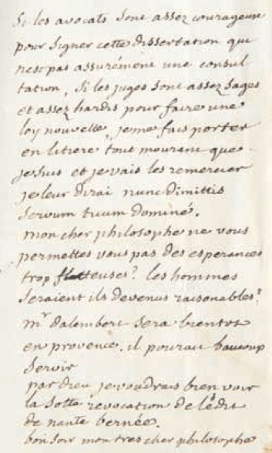 Si les avocats sont assez courageux
pour signer cette dissertation qui
nest pas assurément une consul
tation, si les juges sont assez sages
et assez hardis pour faire une
loy nouvelle, je me fais porter
en litiere tout mourant que
je suis et je vais les remercier
je leur dirai nunc dimittis
servum tuum dominé.
mon cher philosophe ne vous
permettez vous pas des esperances
trop flatteuses? les hommes
seraient ils devenus raisonables?
mr dalembert sera bientot
en provence. il pourait baucoup
servir
par dieu je voudrais bien voir
la sotte revocation de lédit
de nante bernée.
bon soir mon tres cher philosophe